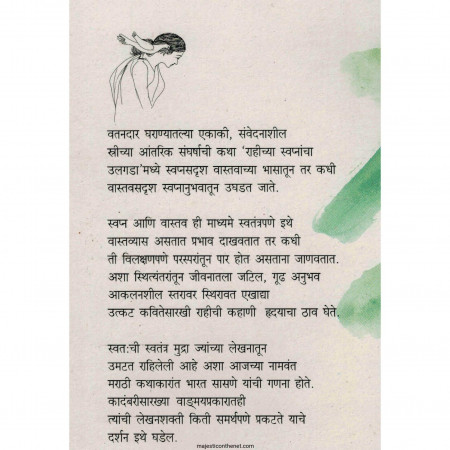 वतनदार घराण्यातल्या एकाकी, संवेदनाशील
स्त्रीच्या आंतरिक संघर्षाची कथा ‘राहीच्या स्वप्नांचा
उलगडा’मध्ये स्वप्नसदृश वास्तवाच्या भासातून तर कधी
वास्तवसदृश स्वप्नानुभवातून उघडत जाते.
स्वप्न आणि वास्तव ही माध्यमे स्वतंत्रपणे इथे
वास्तव्यास असतात प्रभाव दाखवतात तर कधी
ती विलक्षणपणे परस्परांतून पार होत असताना जाणवतात.
अशा स्थित्यंतरांतून जीवनातला जटिल, गूढ अनुभव
आकलनशील स्तरावर स्थिरावत एखाद्या
उत्कट कवितेसारखी राहीची कहाणी हृदयाचा ठाव घेते.
स्वत:ची स्वतंत्र मुद्रा ज्यांच्या लेखनातून
उमटत राहिलेली आहे अशा आजच्या नामवंत
मराठी कथाकारांत भारत सासणे यांची गणना होते.
कादंबरीसारख्या वाङ्मयप्रकारातही
त्यांची लेखनशक्ती किती समर्थपणे प्रकटते याचे
दर्शन इथे घडेल.
majesticonthenet.com